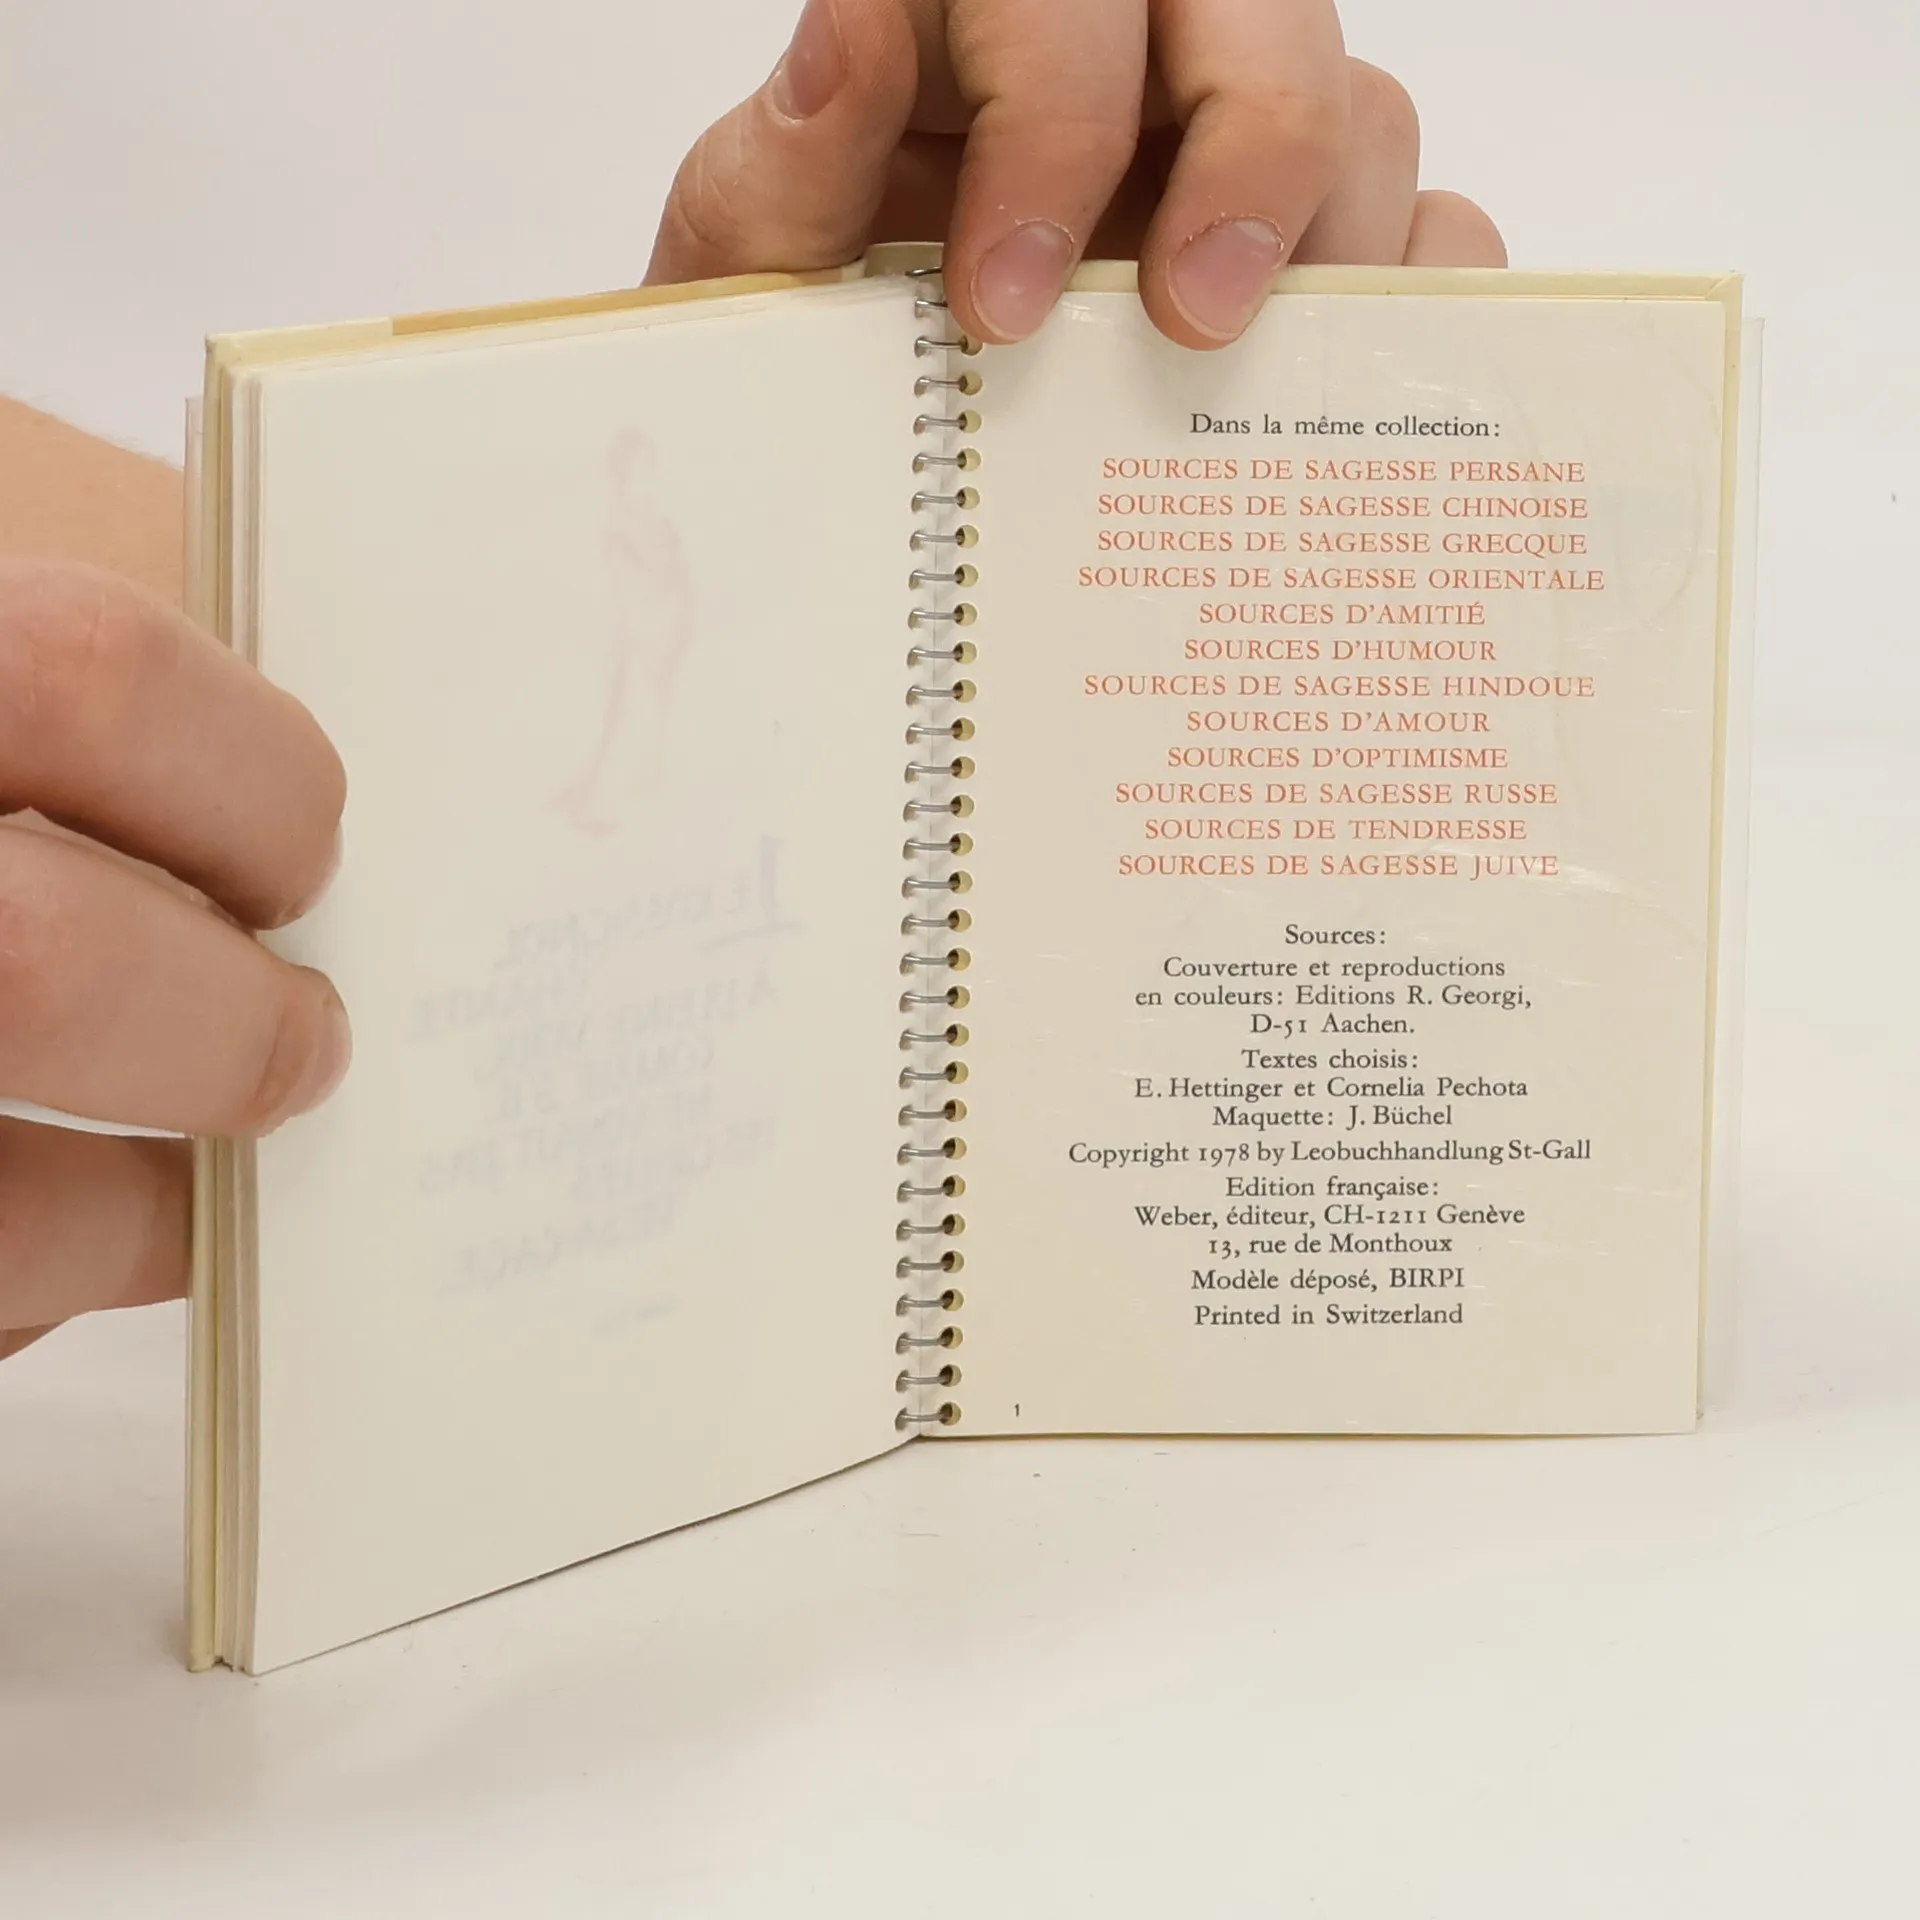 Dans la même collection:
SOURCES DE SAGESSE PERSANE
SOURCES DE SAGESSE CHINOISE
SOURCES DE SAGESSE GRECQUE
SOURCES DE SAGESSE ORIENTALE
SOURCES D'AMITIÉ
SOURCES D'HUMOUR
SOURCES DE SAGESSE HINDOUE
SOURCES D'AMOUR
SOURCES D'OPTIMISME
SOURCES DE SAGESSE RUSSE
SOURCES DE TENDRESSE
SOURCES DE SAGESSE JUIVE
Sources:
Couverture et reproductions
en couleurs: Editions R. Georgi,
D-51 Aachen.
Textes choisis:
E. Hettinger et Cornelia Pechota
Maquette: J. Büchel
Copyright 1978 by Leobuchhandlung St-Gall
Edition française:
Weber, éditeur, CH-1211 Genève
13, rue de Monthoux
Modèle déposé, BIRPI
Printed in Switzerland
1